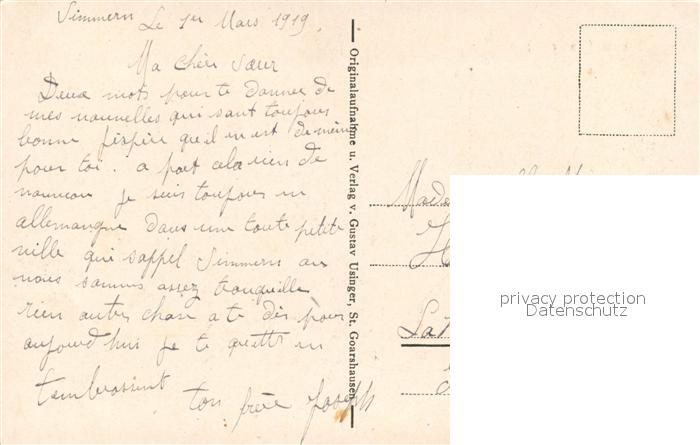 Simmern Le 1er Mars 1919
Ma Chère Sœur
Deux mots pour te donner de
mes nouvelles qui sont toujours
bonne j'espère qu'il en est de même
pour toi. a part cela rien de
nouveau je suis toujours en
allemangne dans une toute petite
ville qui sappel Simmern ou
nous sommes assez tranquille
rien autres chose a te dis pour
aujourd'hui je te quitte en
t'embrassent
ton frère Joseph
Originalaufnahme u. Verlag v. Gustav Usinger, St. Goarshausen
privacy protection
Datenschutz